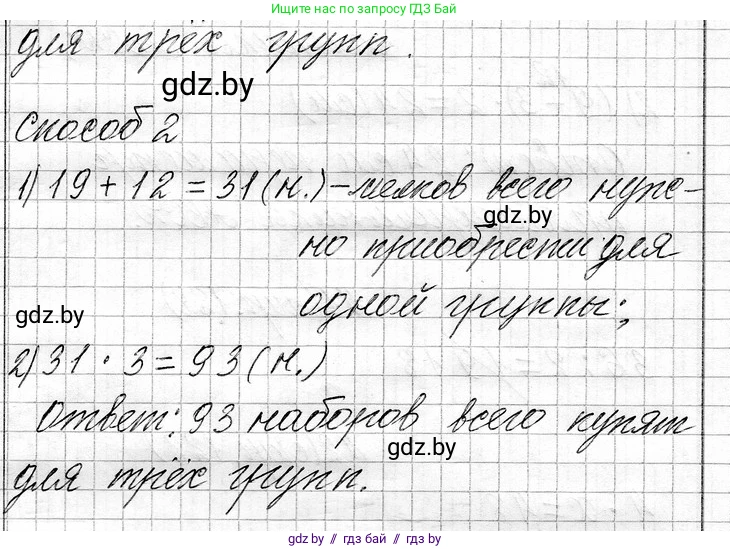 Пишите нас по запросу ГДЗ Бай
для трёх групп.
gdz.by
способ 2
1) 19 + 12 = 31 (н.) – мелков всего нуж-
gdz.by
но приобрести для
gdz.by
одной группы;
2) 31 · 3 = 93 (н.)
Ответ: 93 наборов всего купят
gdz.by
для трёх групп.
gdz.by // гдз бай // gdz.by